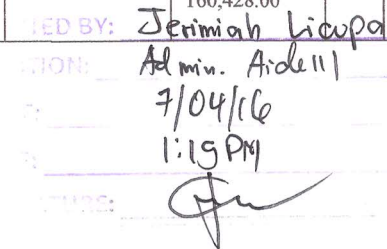 160,428.00
ED BY: Jerimiah Licupa
ION: Admin. Aide III
7/04/16
1:19 PM
TURE: